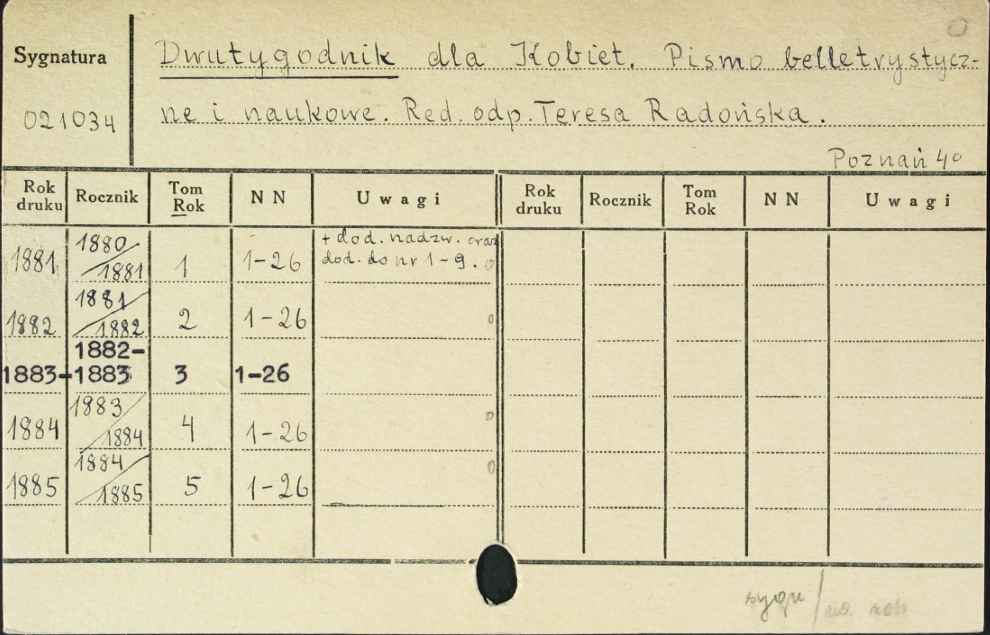 Sygnatura
021034
Dwutygodnik dla Kobiet. Pismo belletrystycz-
ne i naukowe. Red. odp. Teresa Radońska.
Poznań 4°
Rok druku Rocznik Tom Rok N N Uwagi Rok druku Rocznik Tom Rok N N Uwagi
1881 1880/1881 1 1-26 + dod. nadzw. oraz
dod. do nr 1-9.
1882 1881/1882 2 1-26
1883 1882-1883 3 1-26
1884 1883/1884 4 1-26
1885 1884/1885 5 1-26
sygn